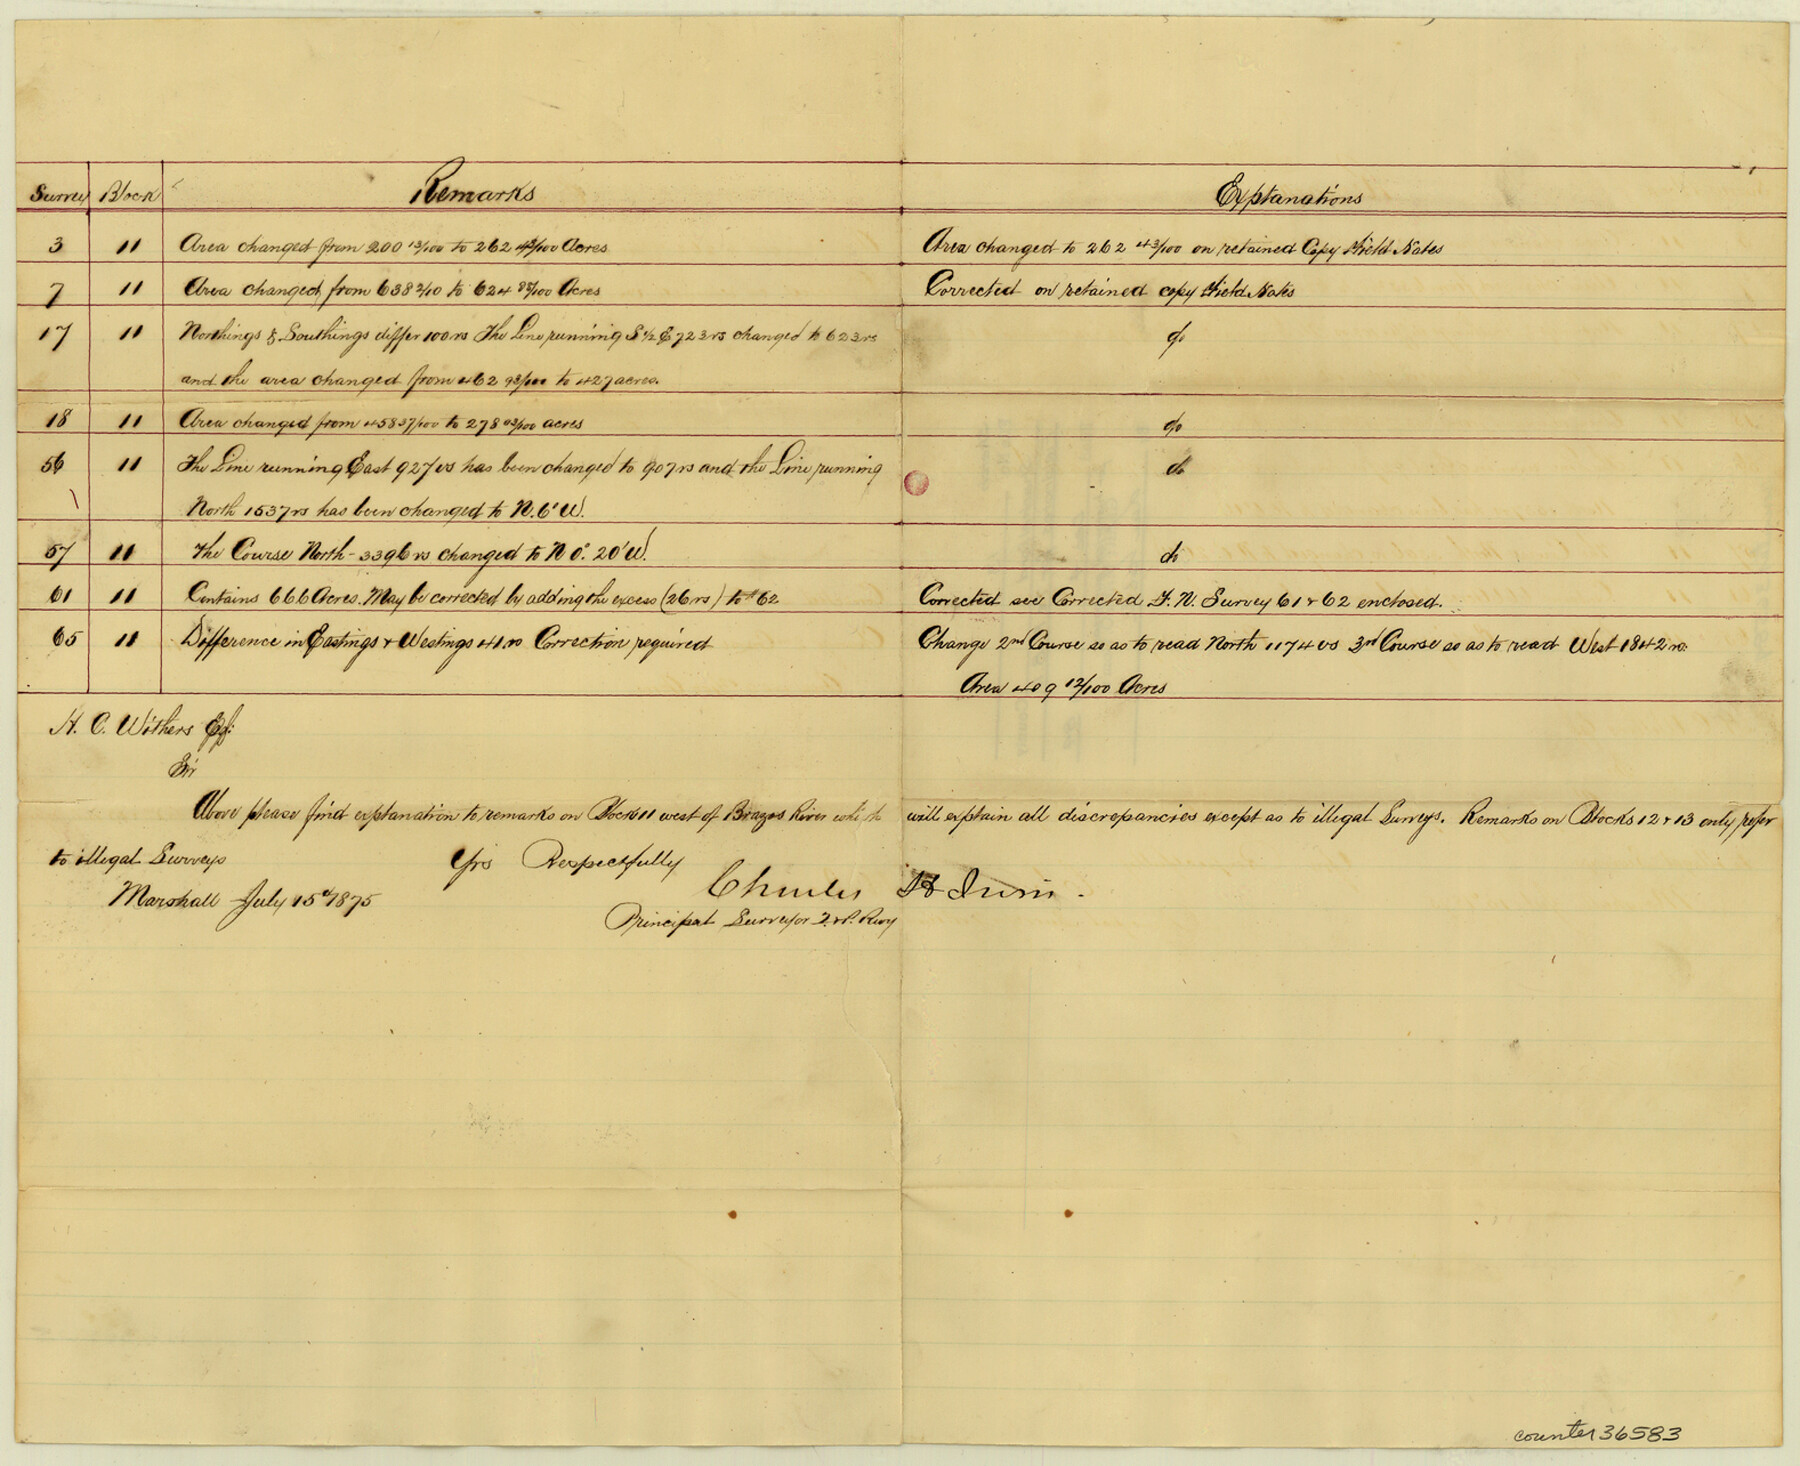 Survey Block Remarks Explanations
3 11 Area changed from 200 13/100 to 262 43/100 Acres Area changed to 262 43/100 on retained Copy Field Notes
7 11 Area changed from 638 2/10 to 624 85/100 Acres Corrected on retained copy Field Notes
17 11 Northings & Southings differ 100 vs The Line running S ½ E 723 vs changed to 623 vs do
and the area changed from 462 98/100 to 427 acres.
18 11 Area changed from 458 37/100 to 278 03/100 acres do
56 11 The Line running East 927 vs has been changed to 907 vs and the Line running do
North 1537 vs has been changed to N. 6' W.
57 11 The Course North - 3396 vs changed to N 0° 20' W. do
61 11 Contains 666 Acres. May be corrected by adding the excess (26 vs) to # 62 Corrected see Corrected F. N. Survey 61 & 62 enclosed.
65 11 Difference in Eastings & Westings 41 vs Correction required Change 2nd Course so as to read North 1174 vs 3rd Course so as to read West 1842 vs.
Area 409 12/100 Acres
H. C. Withers Esq:
Sir
Above please find explanation to remarks on Block 11 west of Brazos River which will explain all discrepancies except as to illegal Surveys. Remarks on Blocks 12 & 13 only refer
to illegal Surveys Yrs Respectfully
Marshall July 15th 1875 Charles H Irvin.
Principal Surveyor T. & P. Rwy
counter 36583